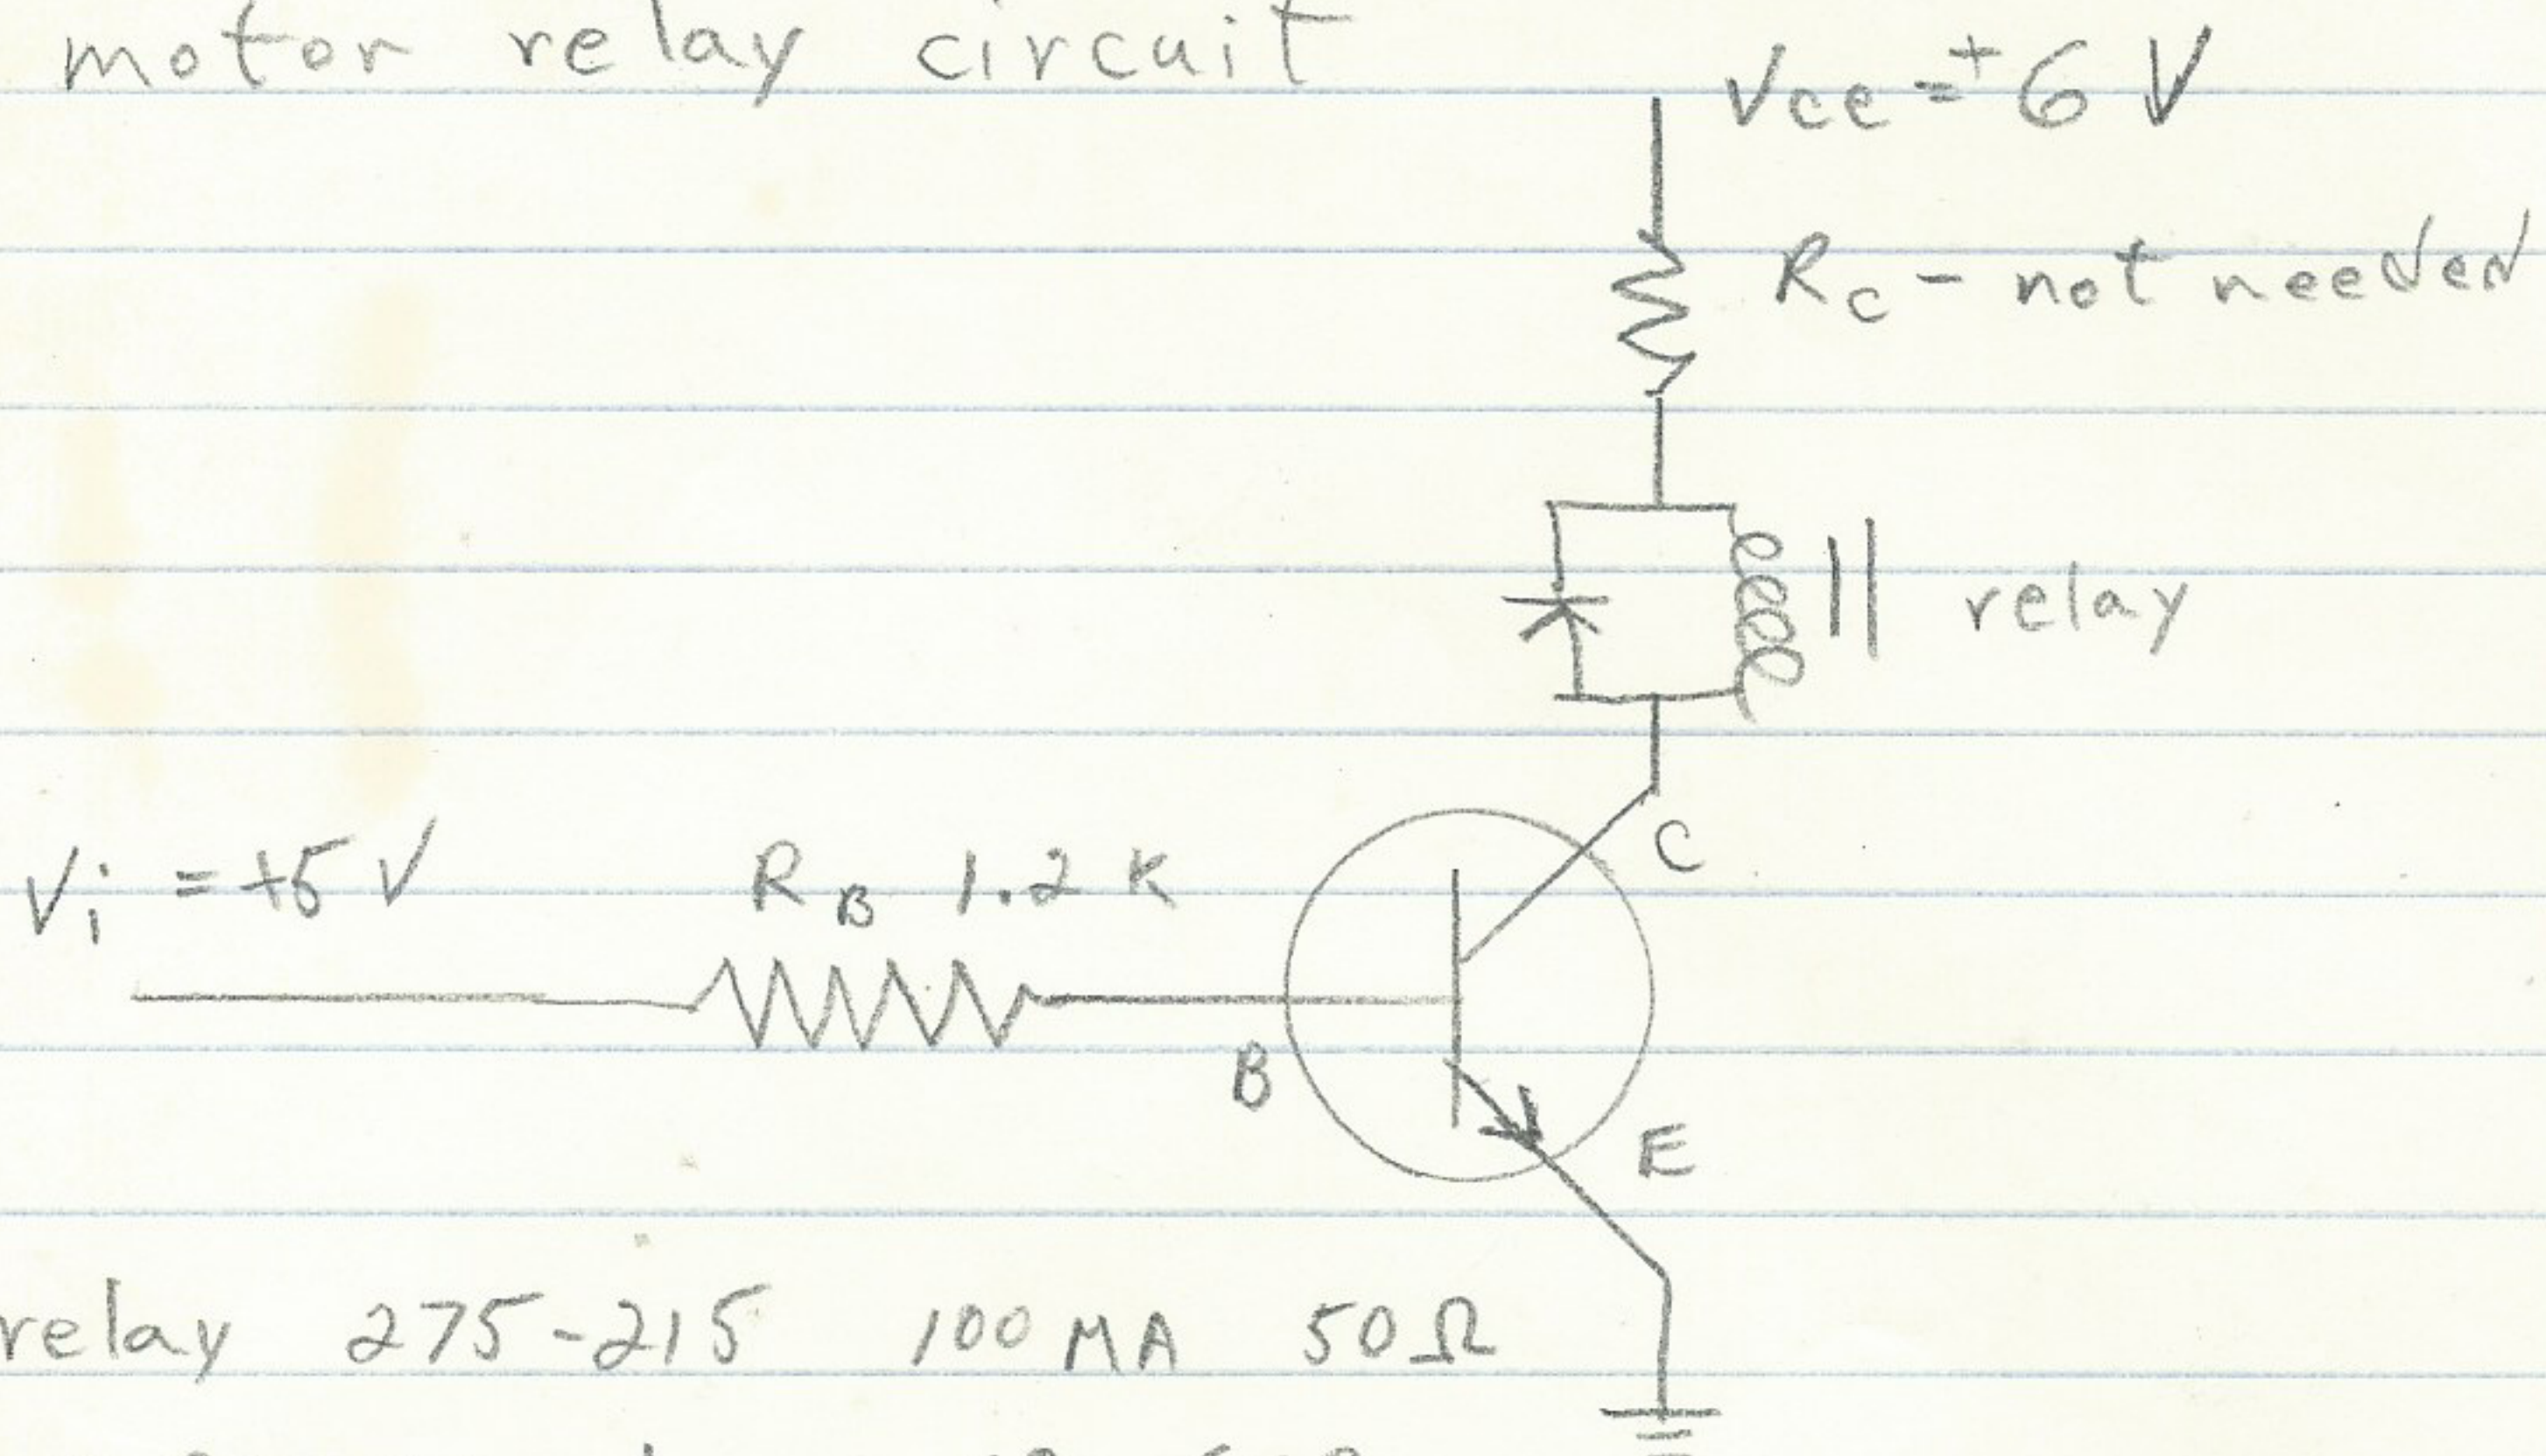 motor relay circuit
Vce = +6 V
Rc - not needed
relay
C
Vi = +5 V
RB 1.2 K
B
E
relay 275-215 100 MA 50 Ω